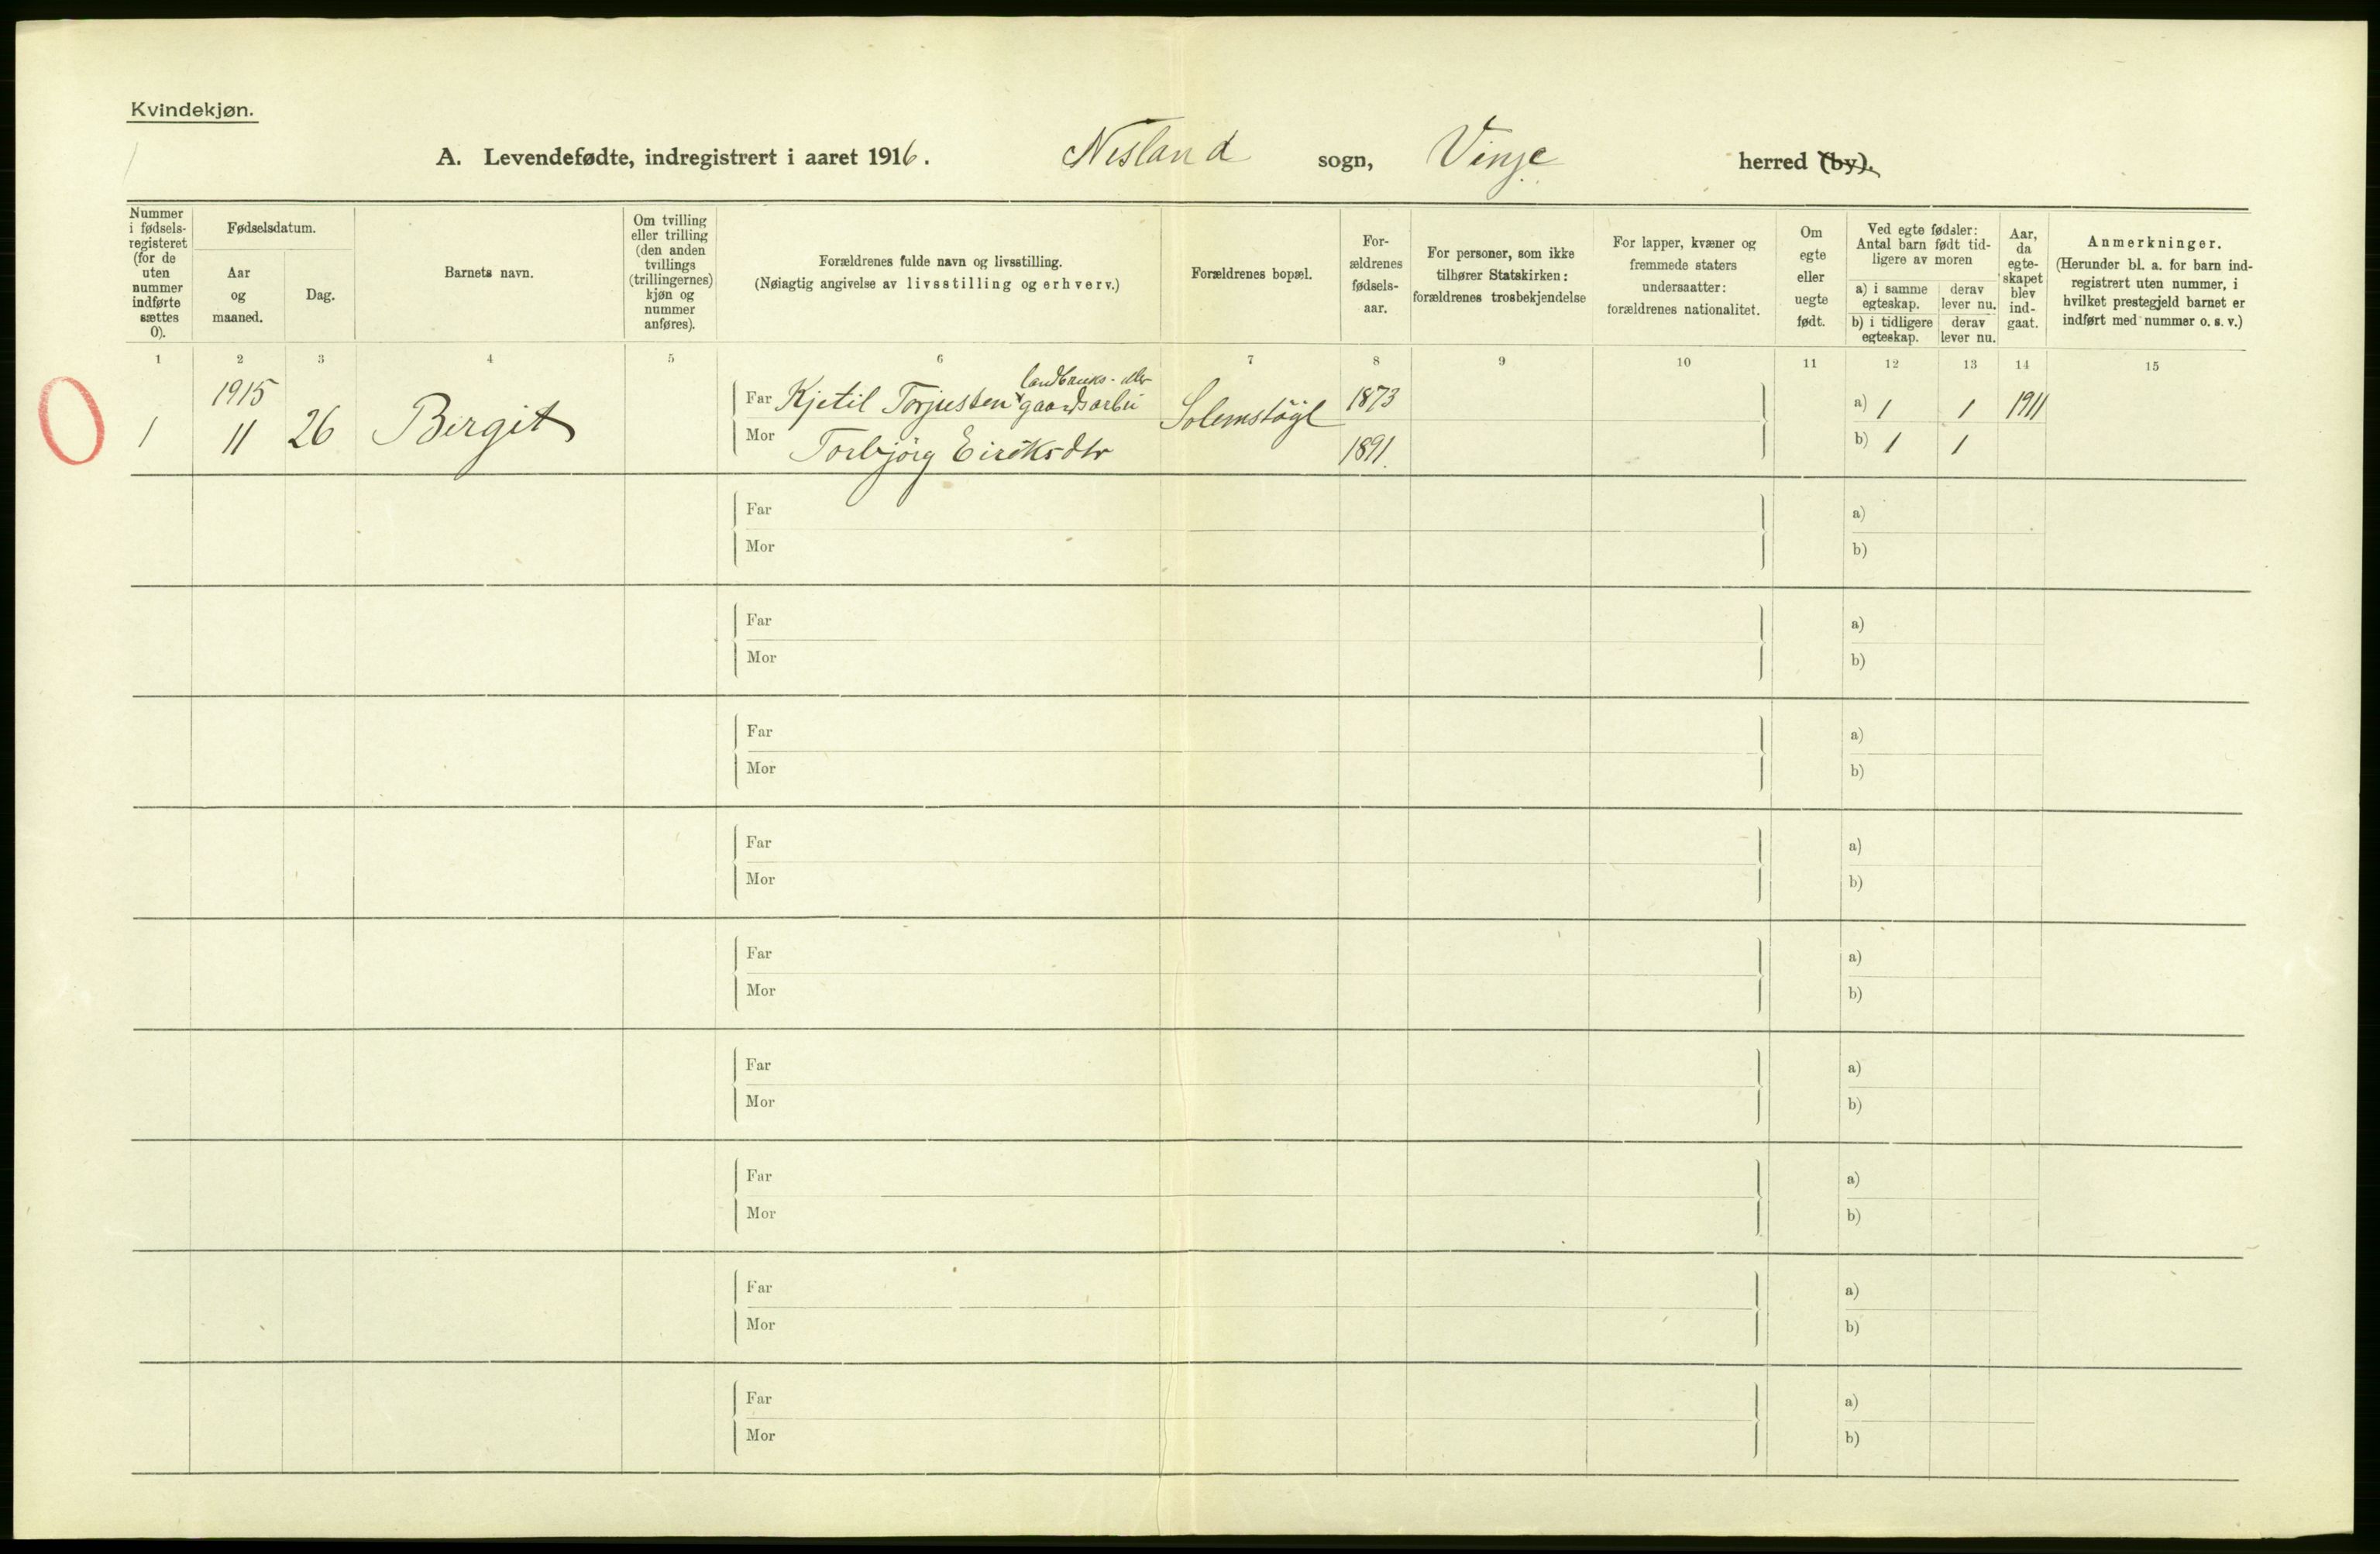 Kvindekjøn.
A. Levendefødte, indregistrert i aaret 1916. Nesland sogn, Vinje herred (by).
Nummer i fødsels-registeret (for de uten nummer indførte sættes 0).
Fødselsdatum.
Aar og maaned.
Dag.
Barnets navn.
Om tvilling eller trilling (den anden tvillings (trillingernes) kjøn og nummer anføres).
Forældrenes fulde navn og livsstilling.
(Nøiagtig angivelse av livsstilling og erhverv.)
Forældrenes bopæl.
For-ældrenes fødsels-aar.
For personer, som ikke tilhører Statskirken: forældrenes trosbekjendelse
For lapper, kvæner og fremmede staters undersaatter: forældrenes nationalitet.
Om egte eller uegte født.
Ved egte fødsler: Antal barn født tid-ligere av moren
a) i samme egteskap.
derav lever nu.
b) i tidligere egteskap.
derav lever nu.
Aar, da egte-skapet blev ind-gaat.
Anmerkninger.
(Herunder bl. a. for barn ind-registrert uten nummer, i hvilket prestegjeld barnet er indført med nummer o. s. v.)
1 2 3 4 5 6 7 8 9 10 11 12 13 14 15
0
1 1915 11 26 Birgit
landbruks-
Far Kjetil Torjussen gaardsarbei Solemstøyl 1873 a) 1 1 1911
Mor Torbjörg Eiriksdtr 1891. b) 1 1
Far a)
Mor b)
Far a)
Mor b)
Far a)
Mor b)
Far a)
Mor b)
Far a)
Mor b)
Far a)
Mor b)
Far a)
Mor b)
Far a)
Mor b)
Far a)
Mor b)